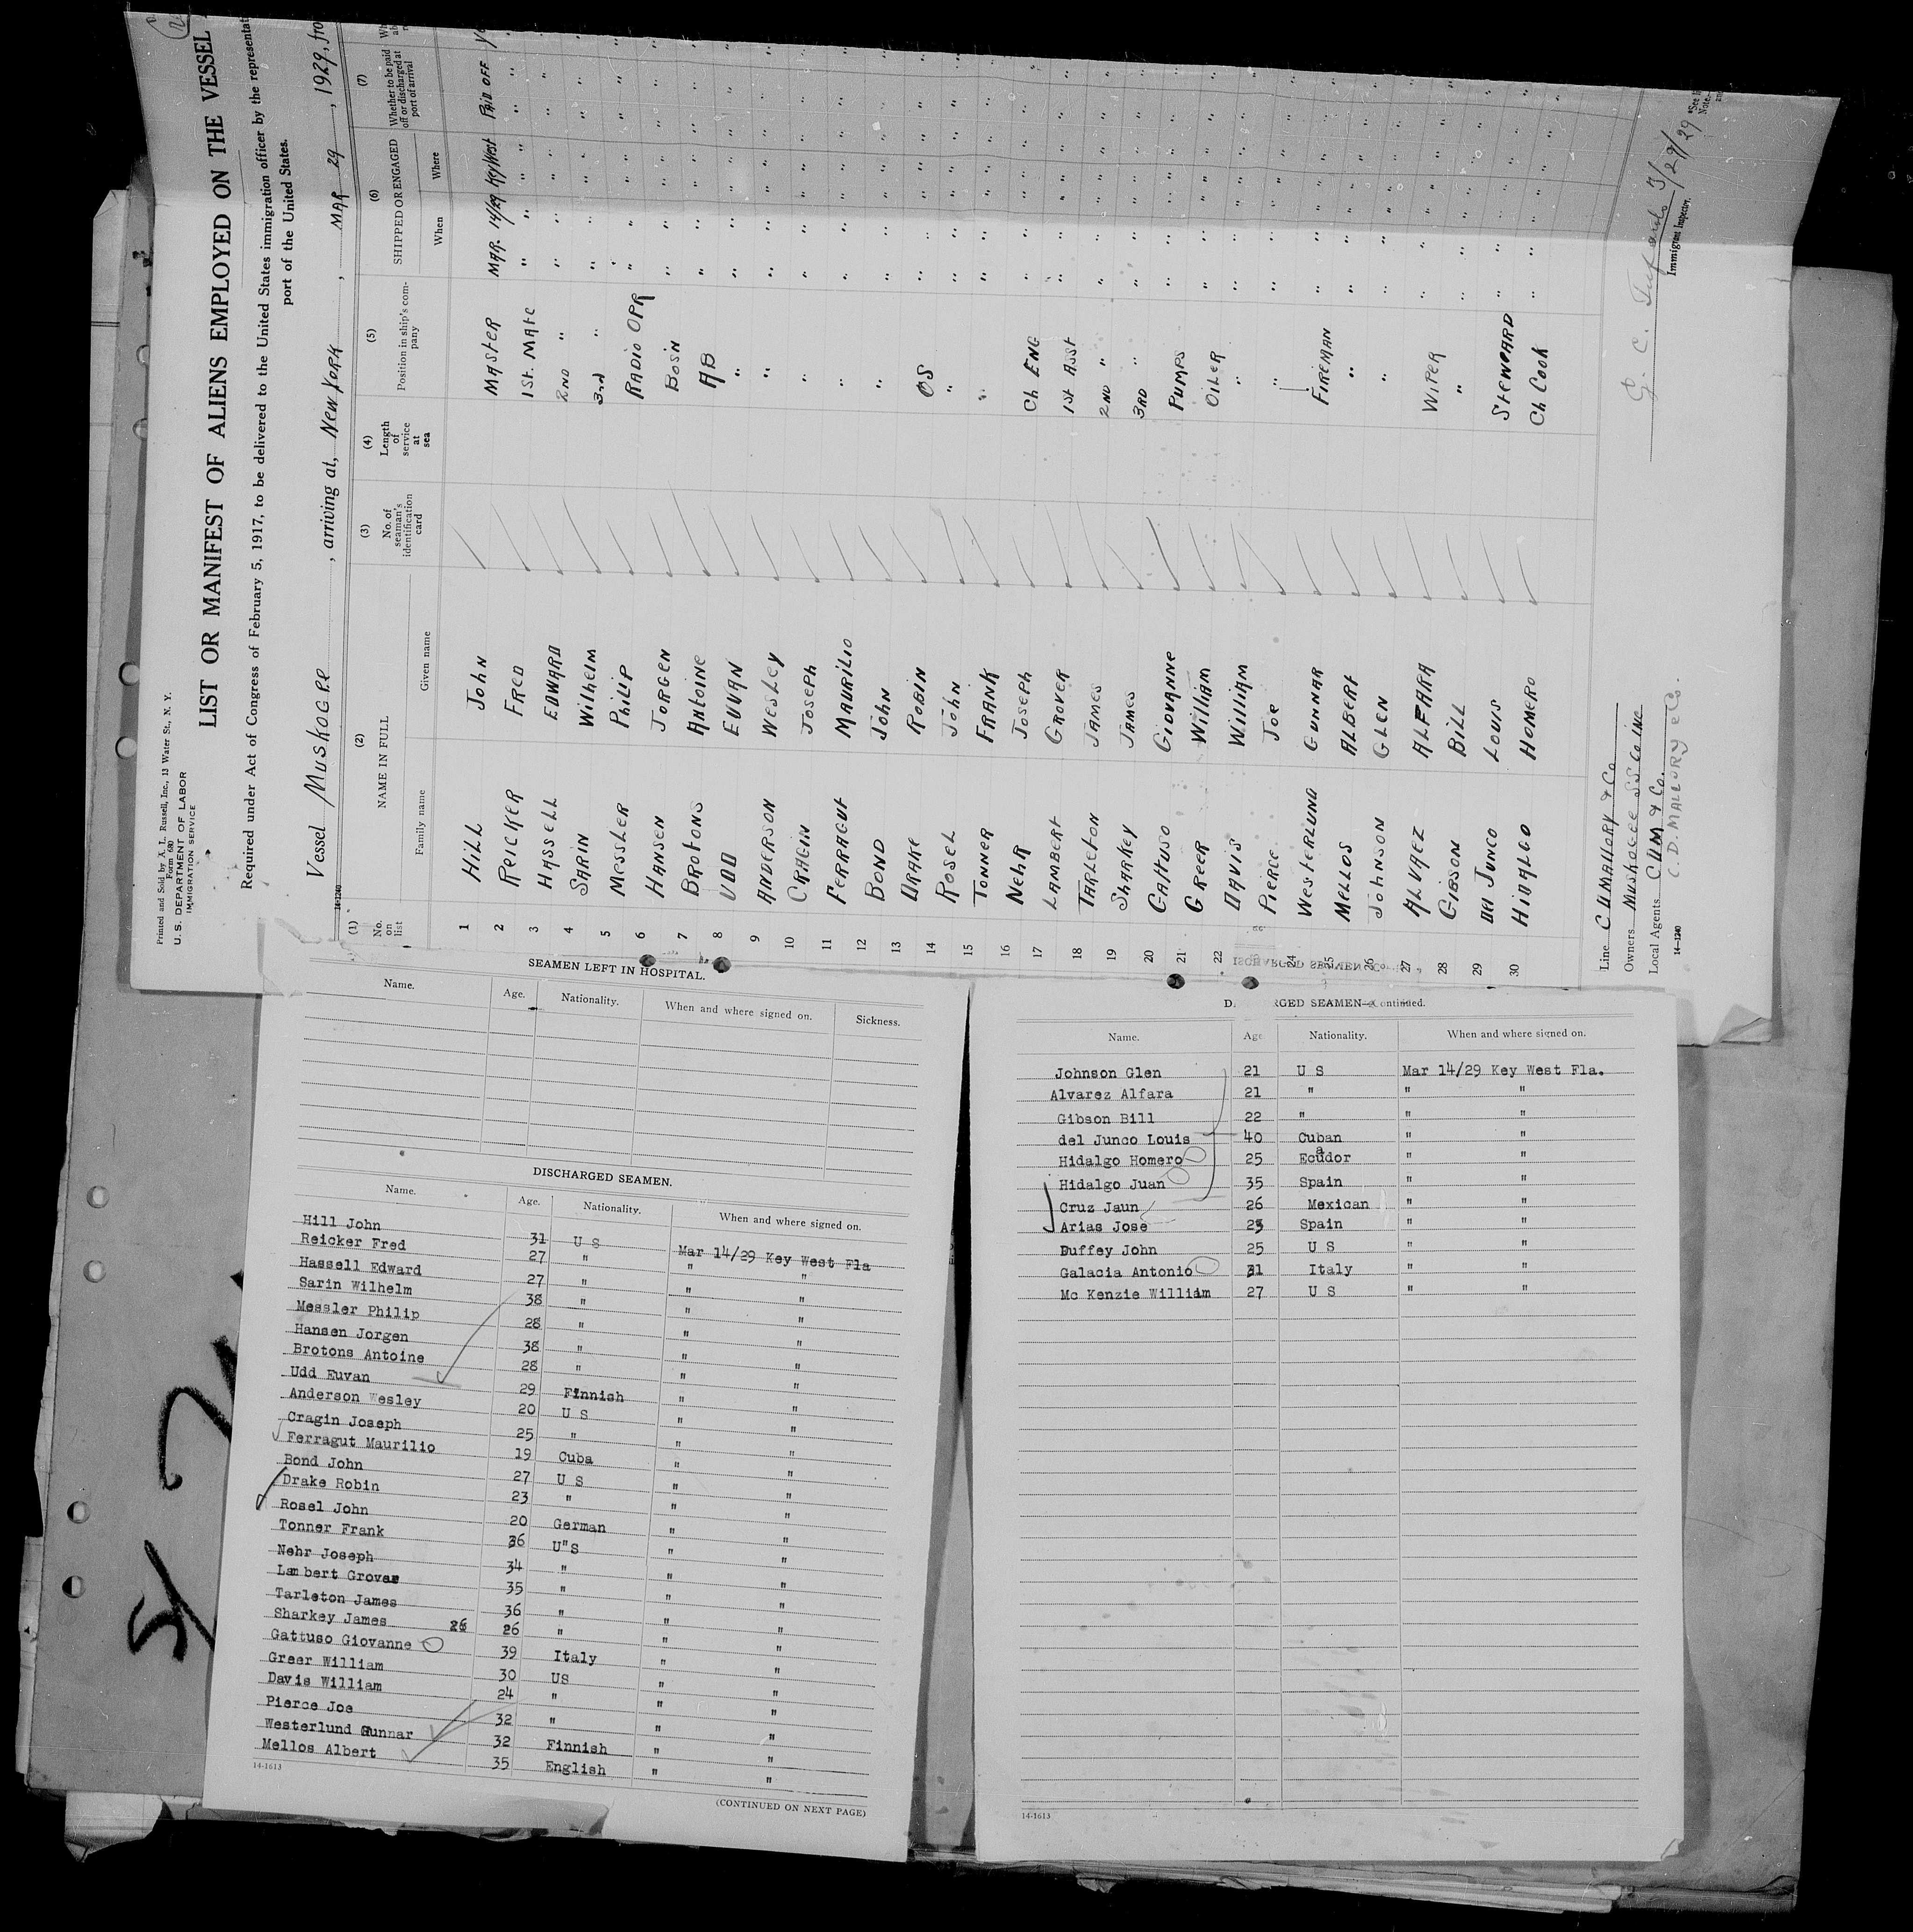 Printed and Sold by A. L. Russell, Inc., 13 Water St., N. Y.
Form 680
U. S. DEPARTMENT OF LABOR
IMMIGRATION SERVICE
LIST OR MANIFEST OF ALIENS EMPLOYED ON THE VESSEL
Required under Act of Congress of February 5, 1917, to be delivered to the United States immigration officer by the representat
port of the United States.
Vessel MUSKOGEE, arriving at, NEW YORK, MAR 29, 1929, fro
14-1240
(1) (2) (3) (4) (5) (6) (7)
No. on list NAME IN FULL No. of seaman's identification card Length of service at sea Position in ship's company SHIPPED OR ENGAGED Whether to be paid off or discharged at port of arrival
Family name Given name When Where
1 HILL John MASTER MAR. 14/29 Key West PAID OFF
2 REICKER FRED 1ST. MATE " " " " "
3 HASSELL EDWARD 2ND " " " " " "
4 SARIN Wilhelm 3rd " " " " " "
5 MESSLER Philip RADIO OPR " " " " "
6 HANSEN JORGEN BOSN " " " " "
7 BROTONS ANTOINE AB " " " " "
8 UDD EUVAN " " " " " "
9 ANDERSON WESLEY " " " " " "
10 CRAGIN JOSEPH " " " " " "
11 FERRAGUT MAURILIO " " " " " "
12 BOND John " " " " " "
13 DRAKE ROBIN OS " " " " "
14 ROSEL John " " " " " "
15 TONNER FRANK " " " " " "
16 NEHR JOSEPH Ch ENG " " " " "
17 LAMBERT GROVER 1ST ASST " " " " "
18 TARLETON JAMES 2ND " " " " " "
19 SHARKEY JAMES 3RD " " " " " "
20 GATTUSO GIOVANNE PUMPS " " " " "
21 GREER William OILER " " " " "
22 DAVIS William " " " " " "
PIERCE JOE " " " " " "
24 WESTERLUND GUNNAR FIREMAN " " " " "
25 MELLOS ALBERT " " " " " "
26 JOHNSON GLEN " " " " " "
27 ALVAEZ ALFARA WIPER " " " " "
28 GIBSON BILL " " " " " "
29 DEL JUNCO LOUIS STEWARD " " " " "
30 HIDALGO HOMERO Ch COOK " " " " "
Line C D MALLORY & Co
Owners MUSKOGEE SS Co INC
Local Agents C D M & Co.
C. D. MALLORY & Co.
14-1240
3/29/29
Immigrant Inspector.
SEAMEN LEFT IN HOSPITAL.
Name. Age. Nationality. When and where signed on. Sickness.
DISCHARGED SEAMEN.
Name. Age. Nationality. When and where signed on.
Hill John 31 U S Mar 14/29 Key West Fla
Reicker Fred 27 " " "
Hassell Edward 27 " " "
Sarin Wilhelm 38 " " "
Messler Philip 28 " " "
Hansen Jorgen 38 " " "
Brotons Antoine 28 " " "
Udd Euvan 29 Finnish " "
Anderson Wesley 20 U S " "
Cragin Joseph 25 " " "
Ferragut Maurilio 19 Cuba " "
Bond John 27 U S " "
Drake Robin 23 " " "
Rosel John 20 German " "
Tonner Frank 36 U"S " "
Nehr Joseph 34 " " "
Lambert Grover 35 " " "
Tarleton James 36 " " "
Sharkey James 26 26 " " "
Gattuso Giovanne 39 Italy " "
Greer William 30 US " "
Davis William 24 " " "
Pierce Joe 32 " " "
Westerlund Gunnar 32 Finnish " "
Mellos Albert 35 English " "
14-1613
(CONTINUED ON NEXT PAGE)
D RGED SEAMEN—Continued.
Name. Age Nationality. When and where signed on.
Johnson Glen 21 U S Mar 14/29 Key West Fla.
Alvarez Alfara 21 " " "
Gibson Bill 22 " " "
del Junco Louis 40 Cuban " "
Hidalgo Homero 25 Ecuador " "
Hidalgo Juan 35 Spain " "
Cruz Jaun 26 Mexican " "
Arias Jose 23 Spain " "
Duffey John 25 U S " "
Galacia Antonio 31 Italy " "
Mc Kenzie William 27 U S " "
14-1613